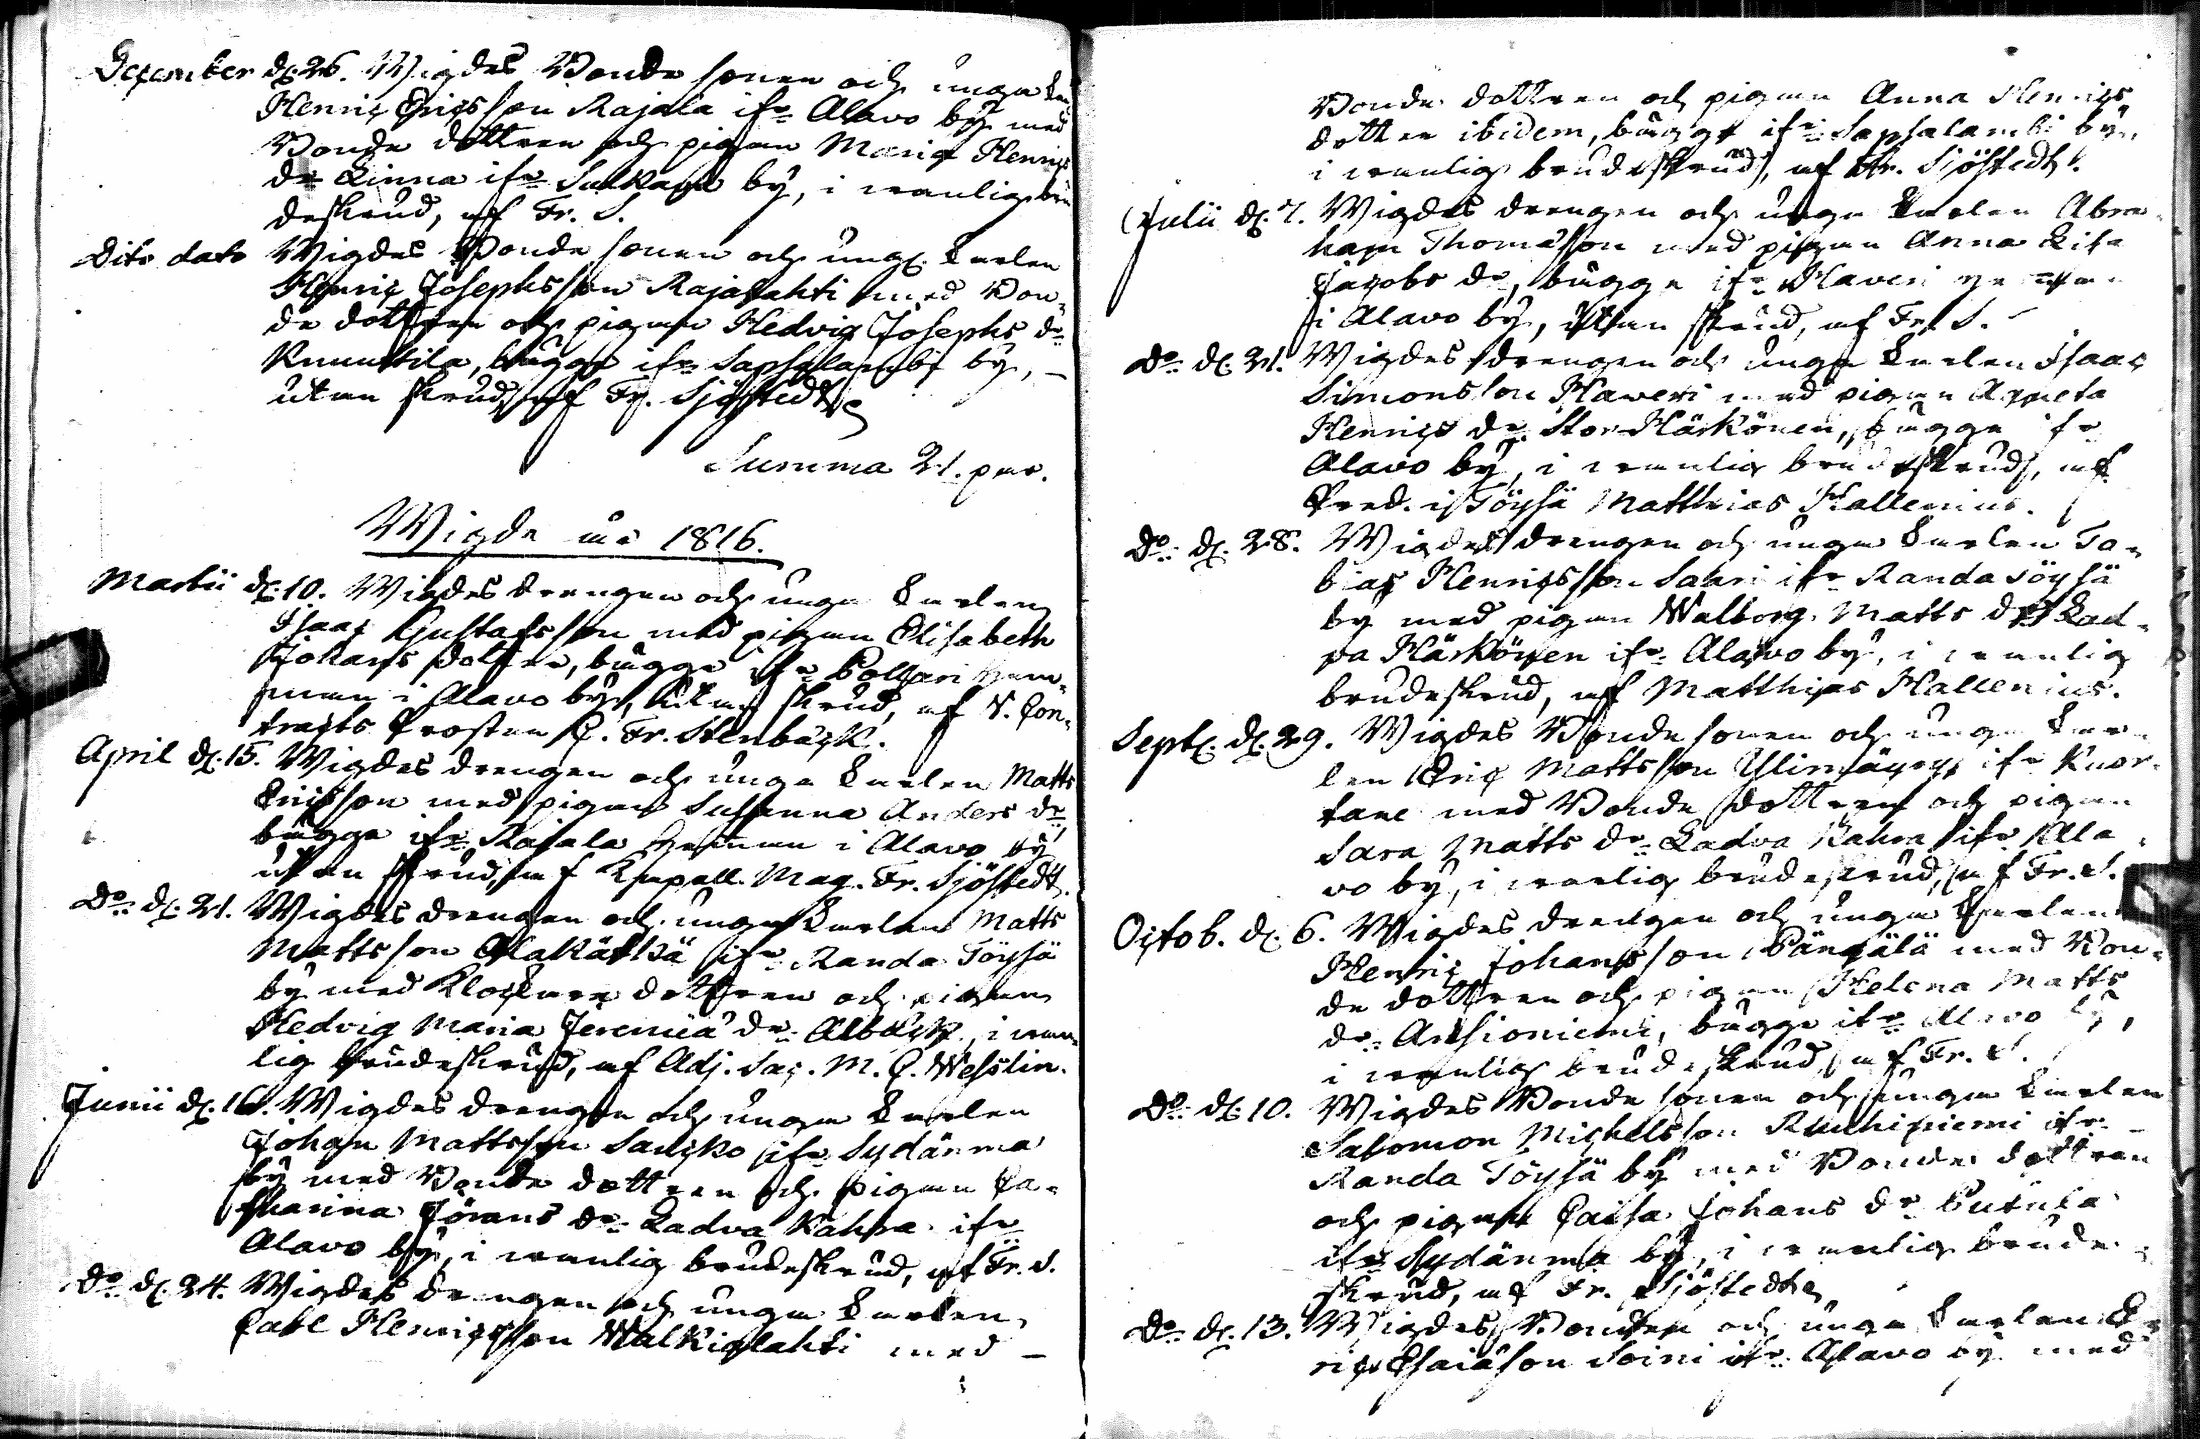 December d. 26. Wigdes Bonde sonen och unga kar
Henric Ericsson Rajala ifr. Alavo by med
Bonde dottren och pigan Maria Henrics
dr Linna ifr. Sulkava by, i wanlig bru
deskrud, af Fr. S.
Dito dato Wigdes Bonde sonen och ung. karlen
Henric Josephsson Rajalahti med Bon-
de dottren och pigan Hedvig Josephs dr
Knuuttila, bägge ifr. Sapsalambi by,
utan skrud, af Fr. Sjöstedt
Summa 21. par.
Wigde åre 1816.
Martii d. 10. Wigdes drengen och unga karlen
Isaac Gustafsson med pigan Elisabeth
Johans dotter, bägge ifr. Pollari hem-
man i Alavo by, utan skrud, af V. Con-
tracts Prosten C. Fr. Stenbäck.
April d. 15. Wigdes drengen och unga karlen Matts
Ericsson med pigan Susanna Anders dr
bägge ifr. Rajala hemman i Alavo by
utan skrud, af Kapell. Mag. Fr. Sjöstedt.
Do d. 21. Wigdes drengen och unga karlen Matts
Mattsson Alakätkä ifr. Randa Töysä
by med Klockare dottren och pigan
Hedvig Maria Jeremiæ dr. Albäck, i wan-
lig brudeskrud, af Adj. Sac. M. C. Weslin.
Junii d. 16. Wigdes drengen och unga karlen
Johan Mattsson Saucko ifr. Sydänma
by med Bonde dottren och pigan Ca-
tharina Jörans dr. Ladva Kahra ifr.
Alavo by, i wanlig brudeskrud, af Fr. S.
Do d. 24. Wigdes drengen och unga karlen
Carl Henricsson Walkialahti med
Bonde dottren och pigan Anna Henrics
dotter ibidem, bägge ifr. Sapsalambi by,
i wanlig brudeskrud, af Fr. Sjöstedt.
Julii d. 7. Wigdes drengen och unga karlen Abra-
ham Thomasson med pigan Anna Lisa
Jacobs dr, bägge ifr. Haveri hemman
i Alavo by, utan skrud, af Fr. S.
Do d. 21. Wigdes drengen och unga karlen Isaac
Simonsson Haweri med pigan Agneta
Henrics dr. Stor Härkönen, bägge ifr
Alavo by, i wanlig brudeskrud, af
Pred. i Töysä Matthias Hallenius.
Do d. 28. Wigdes drengen och unga karlen To-
bias Henricsson Saari ifr Randa Töysä
by med pigan Walborg Matts dr Lad-
va Härkönen ifr. Alavo by, i wanlig
brudeskrud, af Matthias Hallenius.
Sept. d. 29. Wigdes Bonde sonen och unga kar-
len Eric Mattsson Ylimäyry ifr Kuor-
tane med Bonde dottren och pigan
Sara Matts dr Ladva Kahra ifr Ala
vo by, i wanlig brudeskrud, af Fr. S.
Octob. d. 6. Wigdes drengen och unga karlen
Henric Johansson Pängälä med Bon-
de dottren och pigan Helena Matts
dr. Ansioniemi, bägge ifr. Alavo by,
i wanlig brudeskrud, af Fr. S.
Do d. 10. Wigdes Bonde sonen och unga karlen
Salomon Michelsson Ruuhiniemi ifr.
Randa Töysä by med Bonde dottren
och pigan Caisa Johans dr Putula
ifr. Sydänma by, i wanlig brude-
skrud, af Fr. Sjöstedt
Do d. 13. Wigdes Bonden och unga karlen E-
ric Esaiæson Soini ifr. Alavo by med